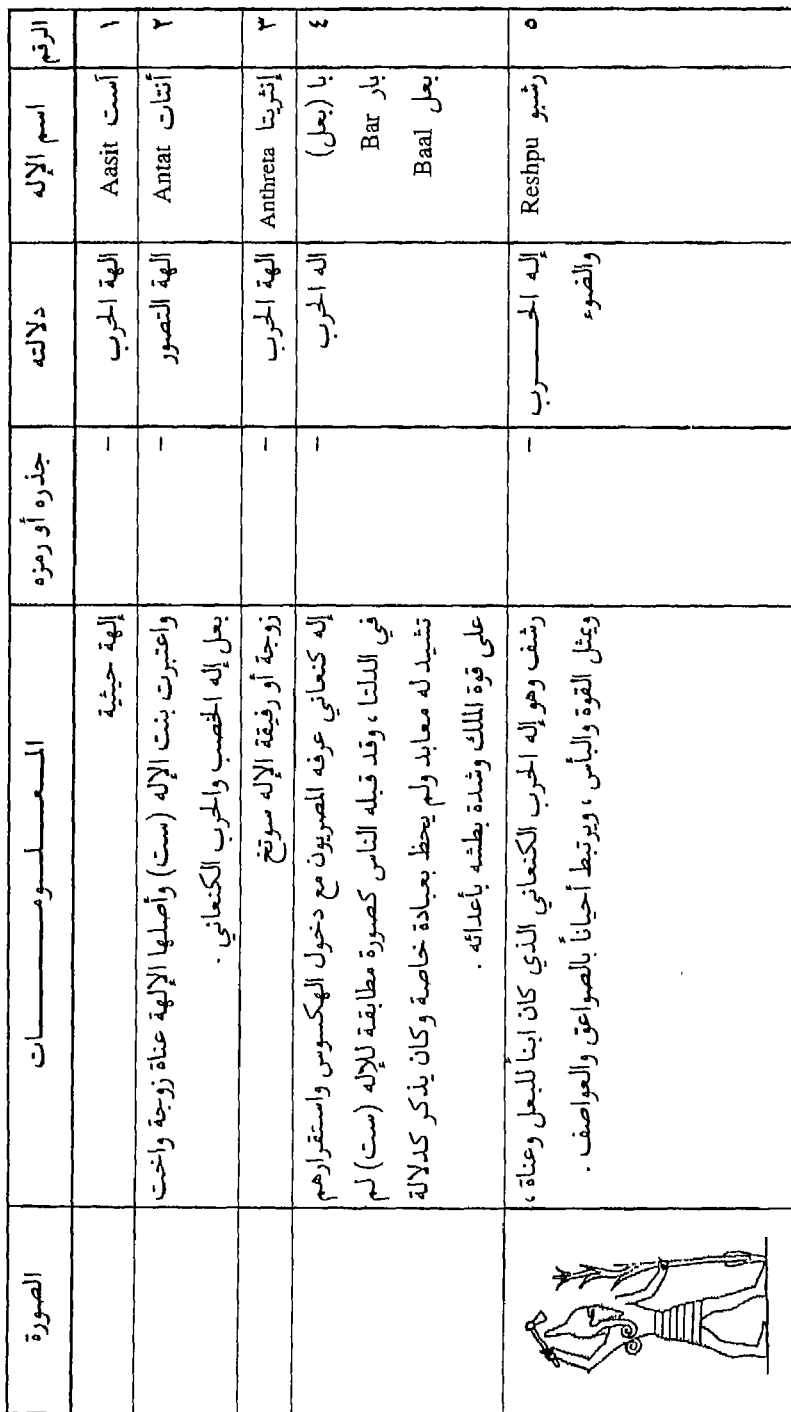 الرقم اسم الإله دلالته جذره أو رمزه المـعـلـومـــات الصورة
١ آست Aasit الهة الحرب - إلهة حيثية
٢ أنتات Antat الهة التصور - واعتبرت بنت الإله (ست) وأصلها الإلهة عناة زوجة واخت
بعل إله الخصب والحرب الكنعاني .
٣ إنثريتا Anthreta الهة الحرب - زوجة أو رفيقة الإله سوتخ
٤ با (بعل) اله الحرب - إله كنعاني عرفه المصريون مع دخول الهكسوس واستقرارهم
بار Bar في الدلتا ، وقد قبله الناس كصورة مطابقة للإله (ست) لم
بعل Baal تشيد له معابد ولم يحظ بعبادة خاصة وكان يذكر كدلالة
على قوة الملك وشدة بطشه بأعدائه .
٥ رشبو Reshpu إله الحـــرب - رشف وهو إله الحرب الكنعاني الذي كان ابناً للبعل وعناة ،
والضوء ويمثل القوة والبأس ، ويرتبط أحياناً بالصواعق والعواصف .